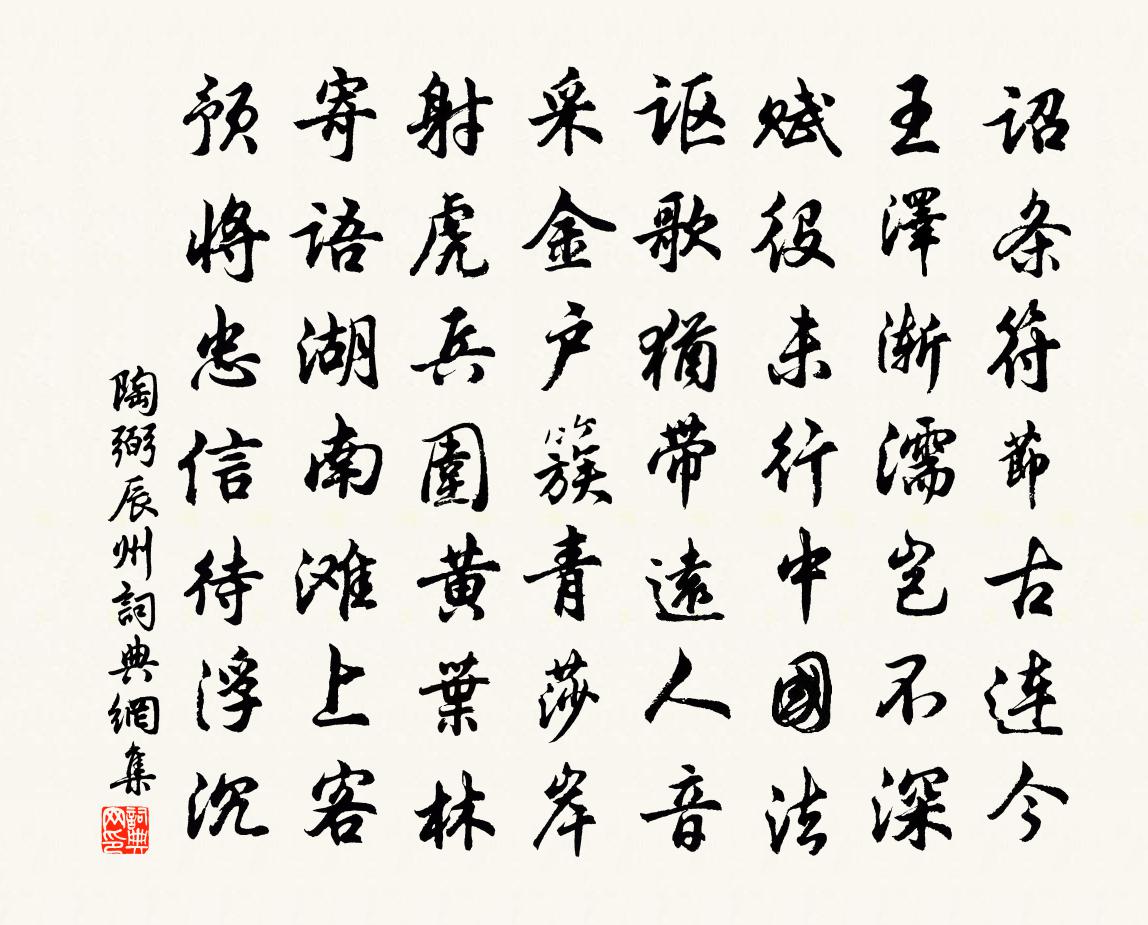 诏条符節古连今
王澤渐濡岂不深
赋役未行中國法
讴歌猶带遠人音
采金户簇青莎岸
射虎兵圍黄葉林
寄语湖南滩上客
预将忠信待浮沉
陶弼辰州詞典網集
詞典网印